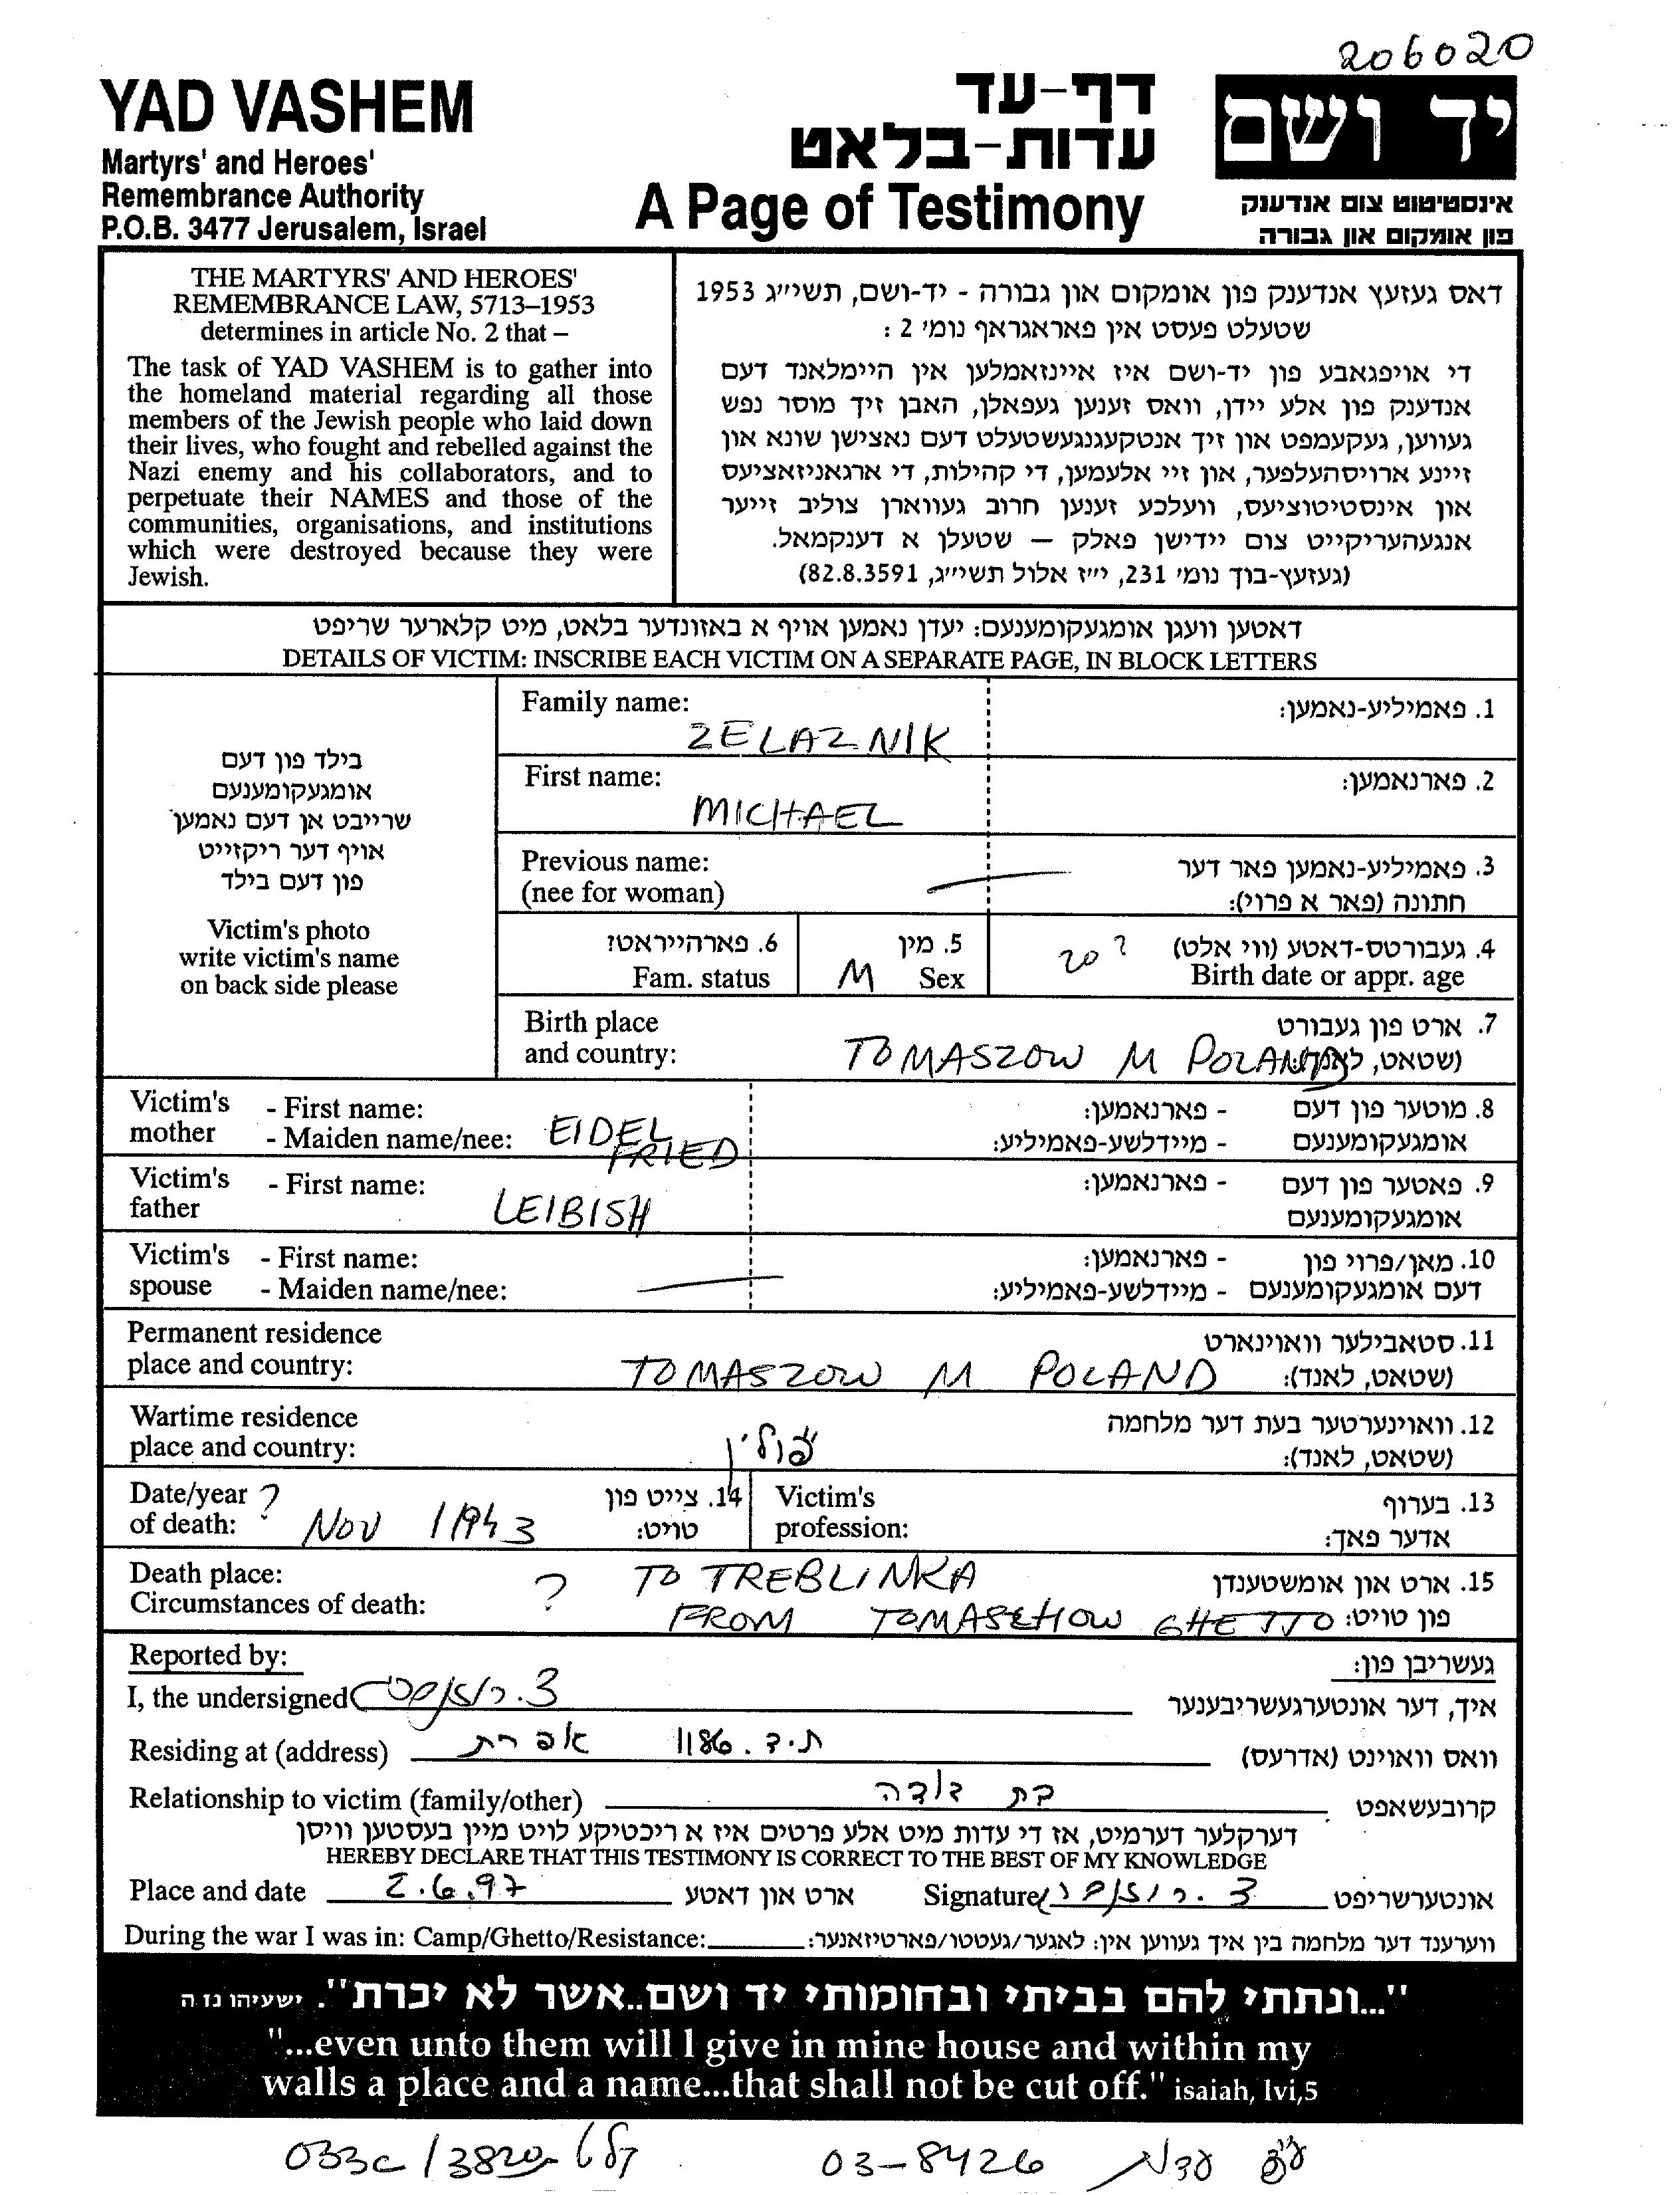 206020
YAD VASHEM
Martyrs' and Heroes'
Remembrance Authority
P.O.B. 3477 Jerusalem, Israel
דף-עד
עדות-בלאט
A Page of Testimony
יד ושם
אינסטיטוט צום אנדענק
פון אומקום און גבורה
THE MARTYRS' AND HEROES'
REMEMBRANCE LAW, 5713–1953
determines in article No. 2 that –
The task of YAD VASHEM is to gather into
the homeland material regarding all those
members of the Jewish people who laid down
their lives, who fought and rebelled against the
Nazi enemy and his collaborators, and to
perpetuate their NAMES and those of the
communities, organisations, and institutions
which were destroyed because they were
Jewish.
דאס געזעץ אנדענק פון אומקום און גבורה - יד-ושם, תשי״ג 1953
שטעלט פעסט אין פאראגראף נומ׳ 2 :
די אויפגאבע פון יד-ושם איז איינזאמלען אין היימלאנד דעם
אנדענק פון אלע יידן, וואס זענען געפאלן, האבן זיך מוסר נפש
געווען, געקעמפט און זיך אנטקעגנגעשטעלט דעם נאצישן שונא און
זיינע ארויסהעלפער, און זיי אלעמען, די קהילות, די ארגאניזאציעס
און אינסטיטוציעס, וועלכע זענען חרוב געווארן צוליב זייער
אנגעהעריקייט צום יידישן פאלק – שטעלן א דענקמאל.
(געזעץ-בוך נומ׳ 231, י״ז אלול תשי״ג, 82.8.3591)
דאטען וועגן אומגעקומענעם: יעדן נאמען אויף א באזונדער בלאט, מיט קלארער שריפט
DETAILS OF VICTIM: INSCRIBE EACH VICTIM ON A SEPARATE PAGE, IN BLOCK LETTERS
בילד פון דעם
אומגעקומענעם
שרייבט אן דעם נאמען
אויף דער ריקזייט
פון דעם בילד
Victim's photo
write victim's name
on back side please
Family name: ZELAZNIK 1. פאמיליע-נאמען:
First name: MICHAEL 2. פארנאמען:
Previous name: 3. פאמיליע-נאמען פאר דער
(nee for woman) חתונה (פאר א פרוי):
6. פארהייראטז 5. מין 20? 4. געבורטס-דאטע (ווי אלט)
Fam. status M Sex Birth date or appr. age
Birth place 7. ארט פון געבורט
and country: TOMASZOW M POLAND (שטאט, לאנד):
Victim's - First name: EIDEL - פארנאמען: 8. מוטער פון דעם
mother - Maiden name/nee: FRIED - מיידלשע-פאמיליע: אומגעקומענעם
Victim's - First name: LEIBISH - פארנאמען: 9. פאטער פון דעם
father אומגעקומענעם
Victim's - First name: - פארנאמען: 10. מאן/פרוי פון
spouse - Maiden name/nee: - מיידלשע-פאמיליע: דעם אומגעקומענעם
Permanent residence 11. סטאבילער וואוינארט
place and country: TOMASZOW M POLAND (שטאט, לאנד):
Wartime residence 12. וואוינערטער בעת דער מלחמה
place and country: פולין (שטאט, לאנד):
Date/year ? 14. צייט פון Victim's 13. בערוף
of death: NOV 1943 טויט: profession: אדער פאך:
Death place: ? TO TREBLINKA 15. ארט און אומשטענדן
Circumstances of death: FROM TOMASEHOW GHETTO פון טויט:
Reported by: געשריבן פון:
I, the undersigned איך, דער אונטערגעשריבענער
Residing at (address) ת.ד. 1186 אפרת וואס וואוינט (אדרעס)
Relationship to victim (family/other) בת דודה קרובעשאפט
דערקלער דערמיט, אז די עדות מיט אלע פרטים איז א ריכטיקע לויט מיין בעסטען וויסן
HEREBY DECLARE THAT THIS TESTIMONY IS CORRECT TO THE BEST OF MY KNOWLEDGE
Place and date 2.6.97 ארט און דאטע Signature אונטערשריפט
During the war I was in: Camp/Ghetto/Resistance: ווערענד דער מלחמה בין איך געווען אין: לאגער/געטטו/פארטיזאנער:
"...ונתתי להם בביתי ובחומותי יד ושם..אשר לא יכרת". ישעיהו נז ה
"...even unto them will I give in mine house and within my
walls a place and a name...that shall not be cut off." isaiah, lvi,5
03-8426